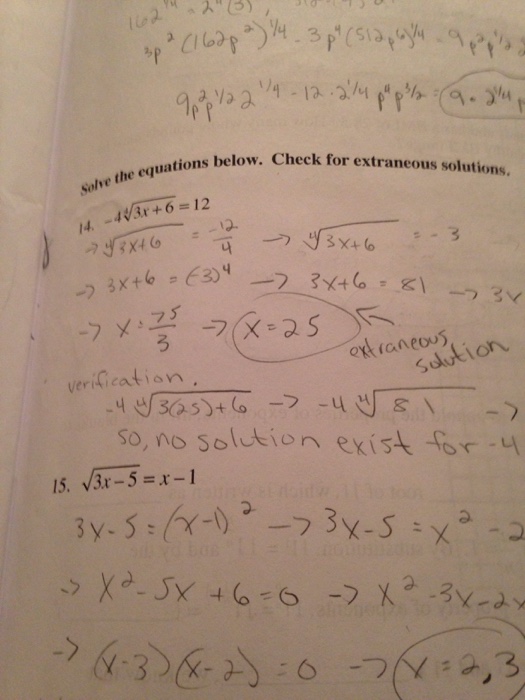 162^1/4 = 2^4(3)
3p^2 (162p^2)^1/4 - 3p^4(512p^6)^1/4 - 9p^2p^1/2
9p^2p^1/2 2^1/4 - 12 · 2^1/4 p^4 p^3/2 = 9 · 2^1/4 p
Solve the equations below. Check for extraneous solutions.
14. -4∜3x+6 = 12
→ ∜3x+6 = -12/4 → ∜3x+6 = -3
→ 3x+6 = (-3)^4 → 3x+6 = 81 → 3x
→ x = 75/3 → x=25
extraneous
solution
verification.
-4 ∜3(25)+6 → -4 ∜81 →
so, no solution exist for -4
15. √3x-5 = x-1
3x-5 = (x-1)^2 → 3x-5 = x^2 -2
→ x^2 -5x +6=0 → x^2 -3x-2x
→ (x-3)(x-2) = 0 → x=2,3